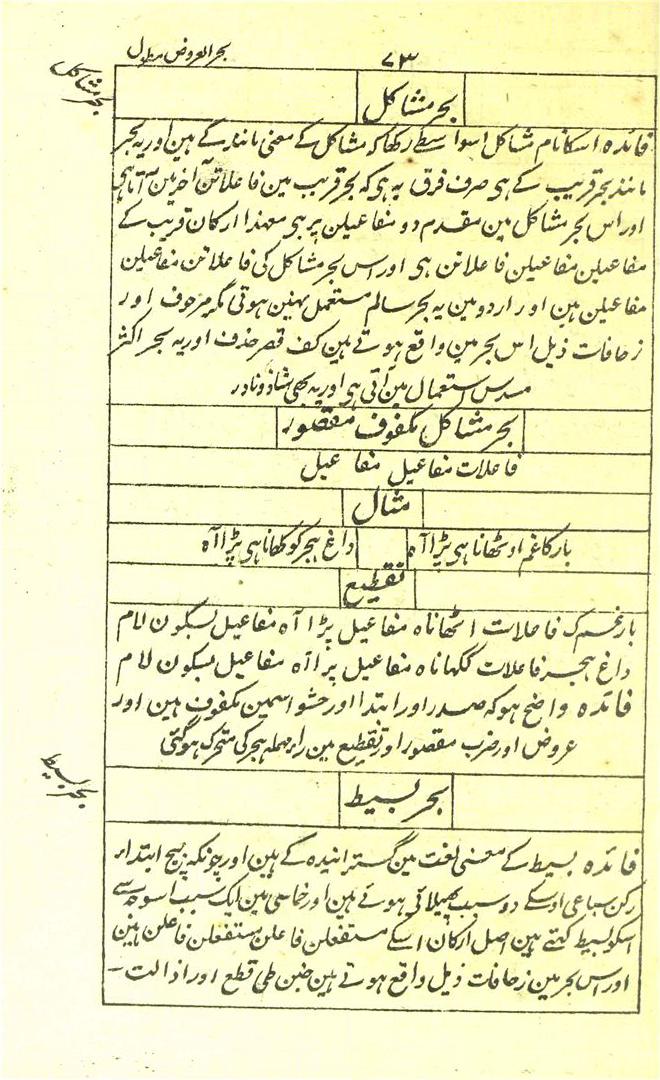 ۷۳
بحر العروض مطول
بحر مشاکل
بحر مشاکل
فائدہ اسکا نام مشاکل اسواسطے رکھا کہ مشاکل کے معنی مانند کے ہین اور یہ بحر
مانند بحر قریب کے ہی صرف فرق یہ ہی کہ بحر قریب مین فاعلاتن آخر مین آتا ہی
اور اس بحر مشاکل مین مقدم دو مفاعیلن پر ہی معہذا ارکان قریب کے
مفاعیلن مفاعیلن فاعلاتن ہی اور اس بحر مشاکل کی فاعلاتن مفاعیلن
مفاعیلن ہین اور اردو مین یہ بحر سالم مستعمل نہین ہوتی مگر مزحوف اور
زحافات ذیل اس بحر مین واقع ہوتے ہین کف قصر حذف اور یہ بحر اکثر
مسدس استعمال مین آتی ہی اور یہ بھی شاذ و نادر
بحر مشاکل مکفوف مقصور
فاعلات مفاعیل مفاعیل
مثال
بار کا غم اوٹھانا ہی پڑا آہ داغ ہجر کو کھانا ہی پڑا آہ
تقطیع
بار غم ک فاعلات اٹھانا ہ مفاعیل پڑا آہ مفاعیل بسکون لام
داغ ہجر فاعلات ککھانا ہ مفاعیل پڑا آہ مفاعیل بسکون لام
فائدہ واضح ہو کہ صدر اور ابتدا اور حشو اسمین مکفوف ہین اور
عروض اور ضرب مقصور اور تقطیع مین راء مہملہ ہجر کی متحرک ہو گئی
بحر بسیط
بحر بسیط
فائدہ بسیط کے معنی لغت مین گسترانیدہ کے ہین اور چونکہ بیچ ابتداء
رکن سباعی اوسکے دو سبب پھیلائی ہوئے ہین اور خماسی مین ایک سبب اسوجہ سے
اسکو بسیط کہتے ہین اصل ارکان اسکے مستفعلن فاعلن مستفعلن فاعلن ہین
اور اس بحر مین زحافات ذیل واقع ہوتے ہین خبن طی قطع اور اذالت -